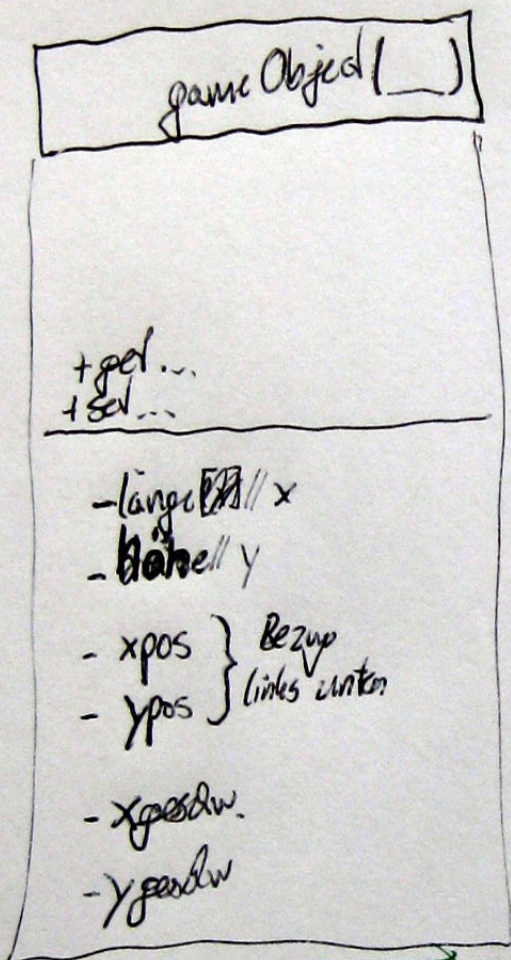 gameObject(__)
+get...
+set...
-länge // x
-höhe // y
- xpos } Bezug
- ypos } links unten
- xgeschw.
- ygeschw